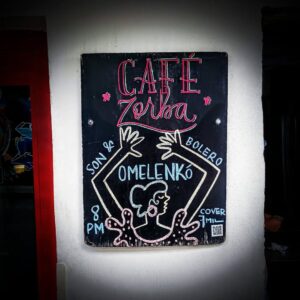 CAFÉ
Zorba
SON &
BOLERO
OMELENKó
8
PM
COVER
7 MIL